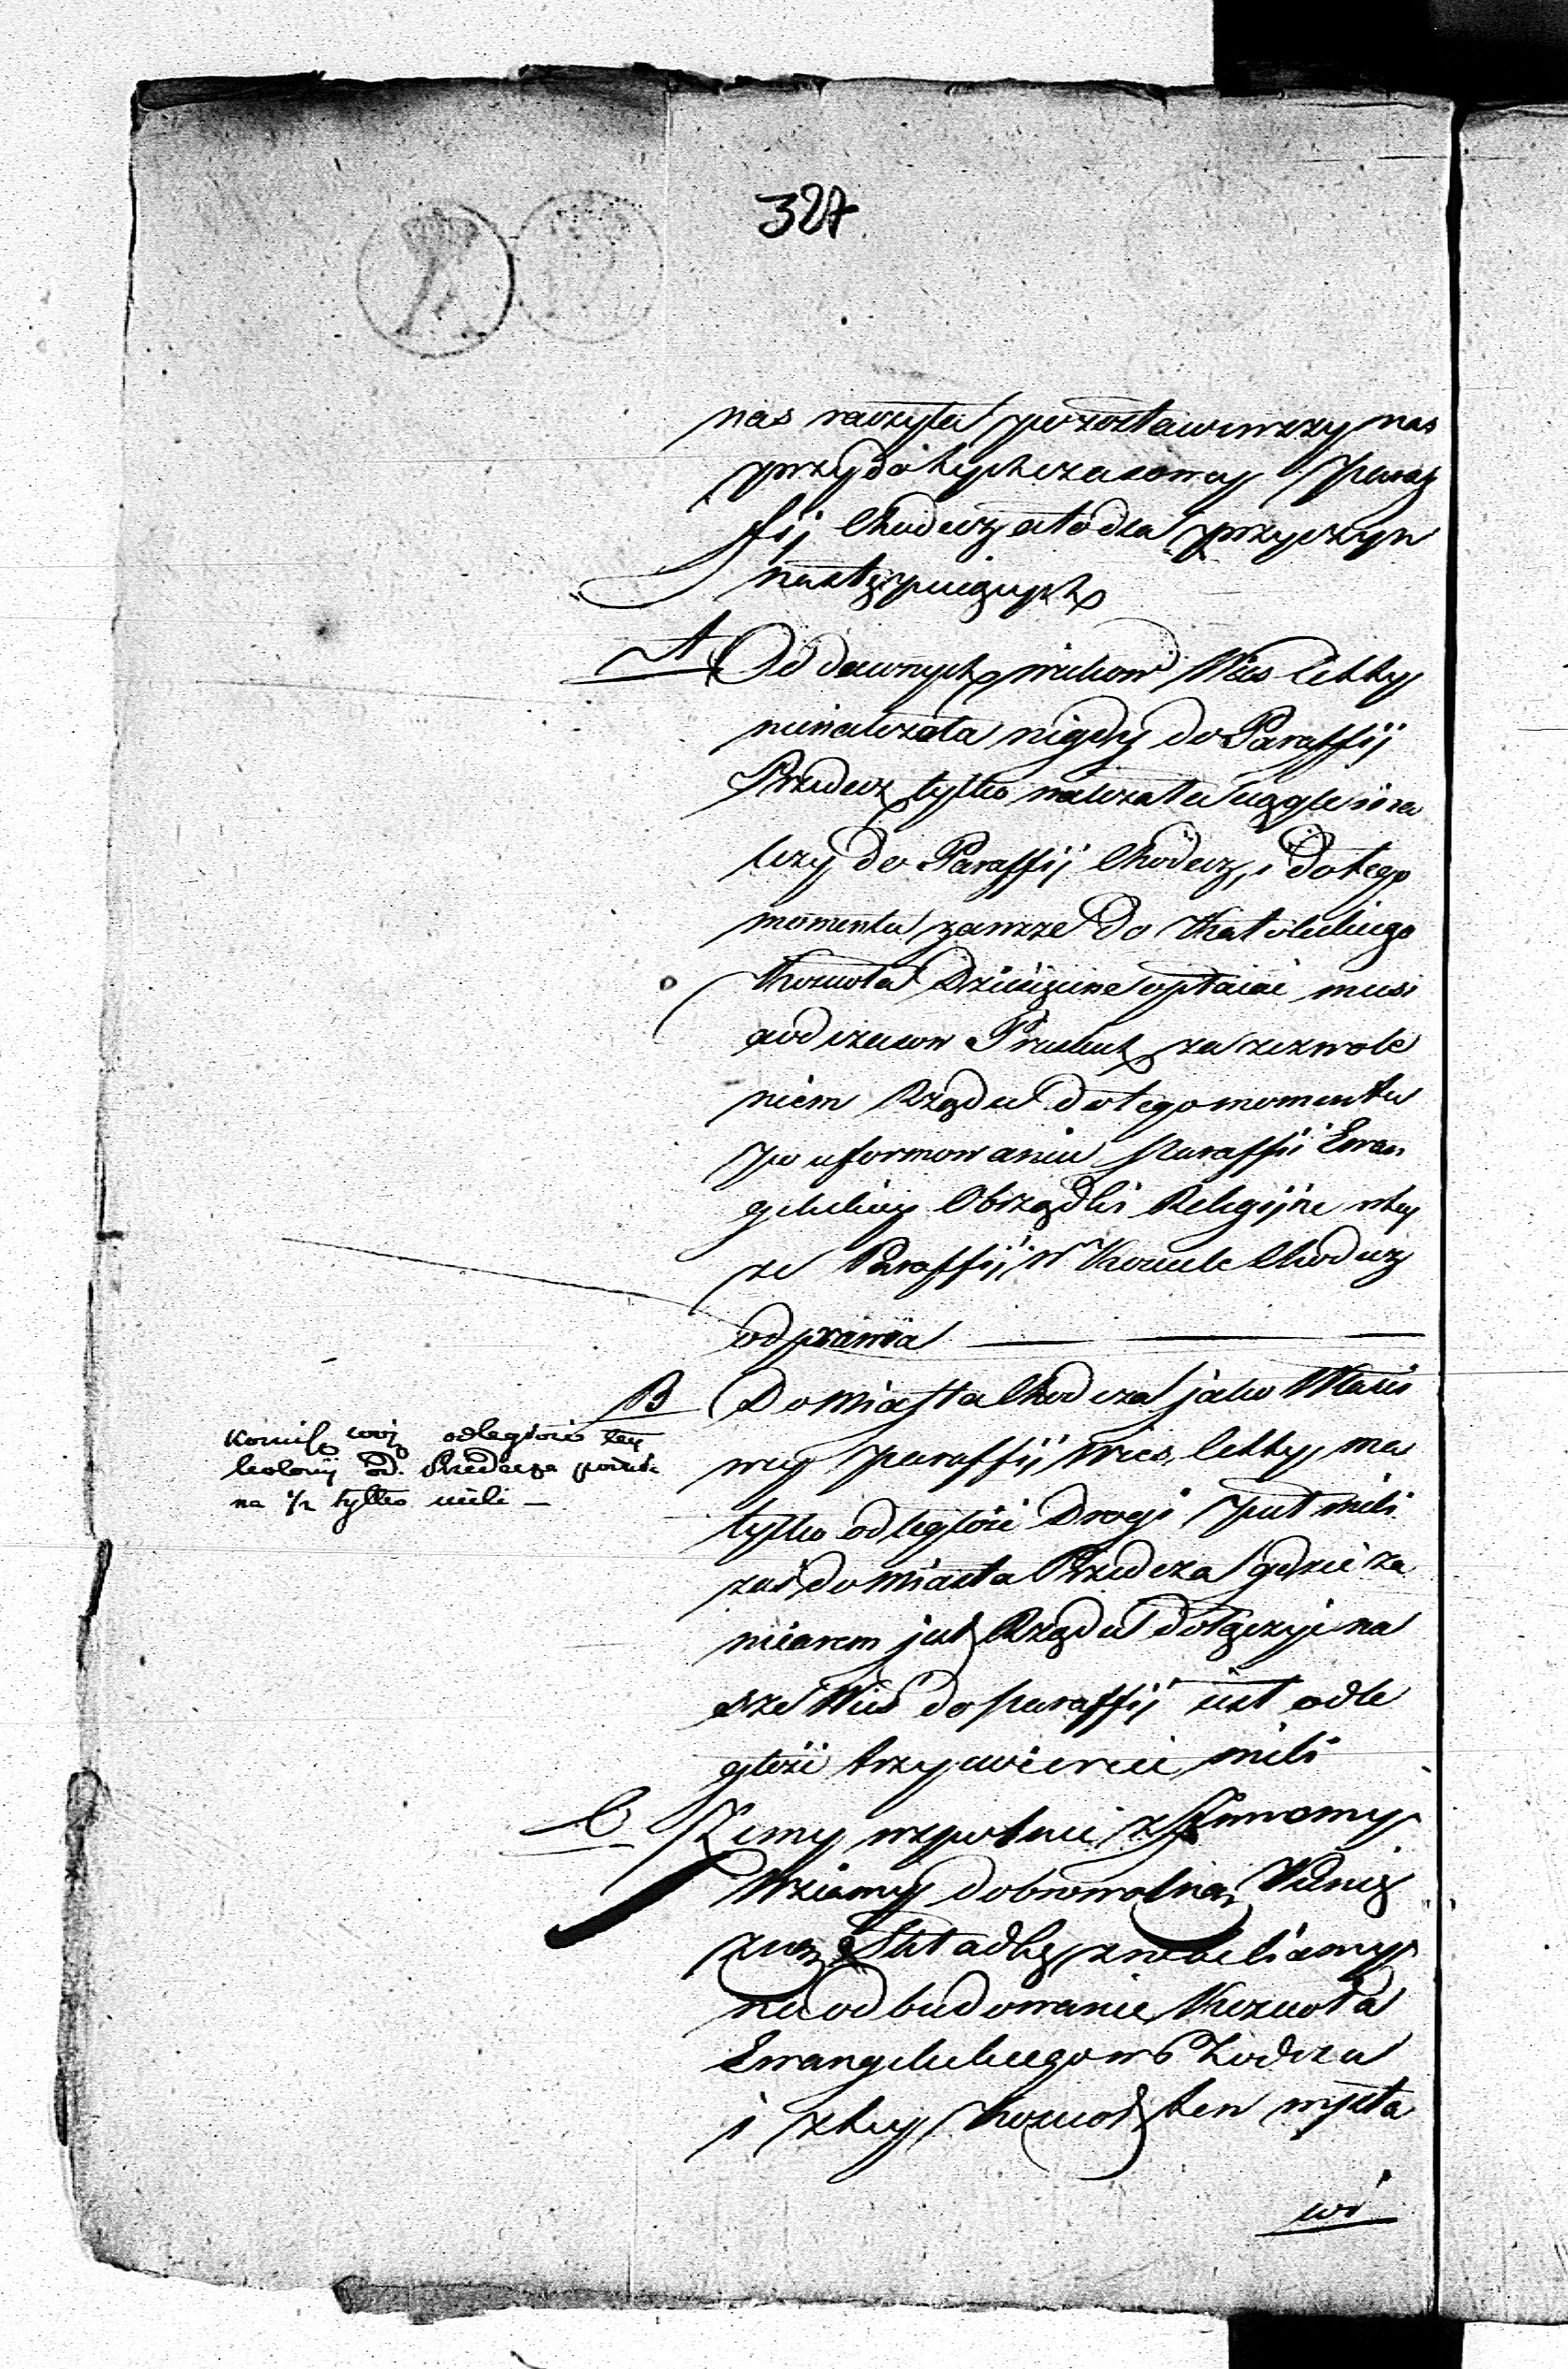 327
nas raczyła pozostawiwszy nas
przy dotychczasowey Para
fij Chodecz a to dla przyczyn
następuiących
A Od dawnych wieków Wieś Cetty
nienależała nigdy do Paraffij
Przedecz tylko należała ciągle i na
leży do Paraffij Chodecz, i do tego
momentu zawsze do Katolickiego
Kościoła Dziesięcine opłaiać musi
a od czasow Pruskich za zezwole
niem Rządu do tego momentu
po uformowaniu Paraffii Ewan
gelickiey Obrządki Religijne w tey
ze Paraffij w Kosciele Chodecz
odprawia
B Do Miasta Chodcza jako Właści
wey paraffij Wies Cetty, ma
tylko odległośc Drogi puł mili
zaś do Miasta Przedcza gdzie za
miarem jest Rządu dołączyć na
sze Wieś do paraffij iest odle
głości trzy cwierci mili
Komis. woj. odległość tey
kolonij od Przedecza podała
na 1/2 tylko mili –
C Ze my wspolnie z
Wziamy dobrowolną Pienię
zną Składkę zrobiliśmy
na odbudowanie Koscioła
Ewangelickiego w Chodczu
i z tey Koscioł ten wysta
wi